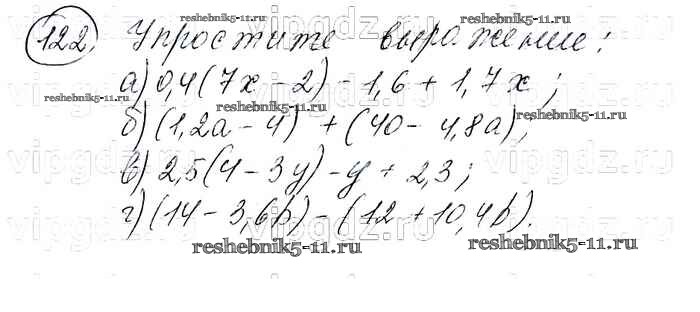 122. Упростите выражение:
reshebnik5-11.ru
а) 0,4(7x - 2) - 1,6 + 1,7x;
reshebnik5-11.ru
reshebnik5-11.ru
б) (1,2a - 4) + (40 - 4,8a);
vipgdz.ru vipgdz.ru vipgdz.ru
в) 2,5(4 - 3y) - y + 2,3;
г) (14 - 3,6b) - (12 + 10,4b).
vipgdz.ru vipgdz.ru vipgdz.ru
reshebnik5-11.ru
reshebnik5-11.ru